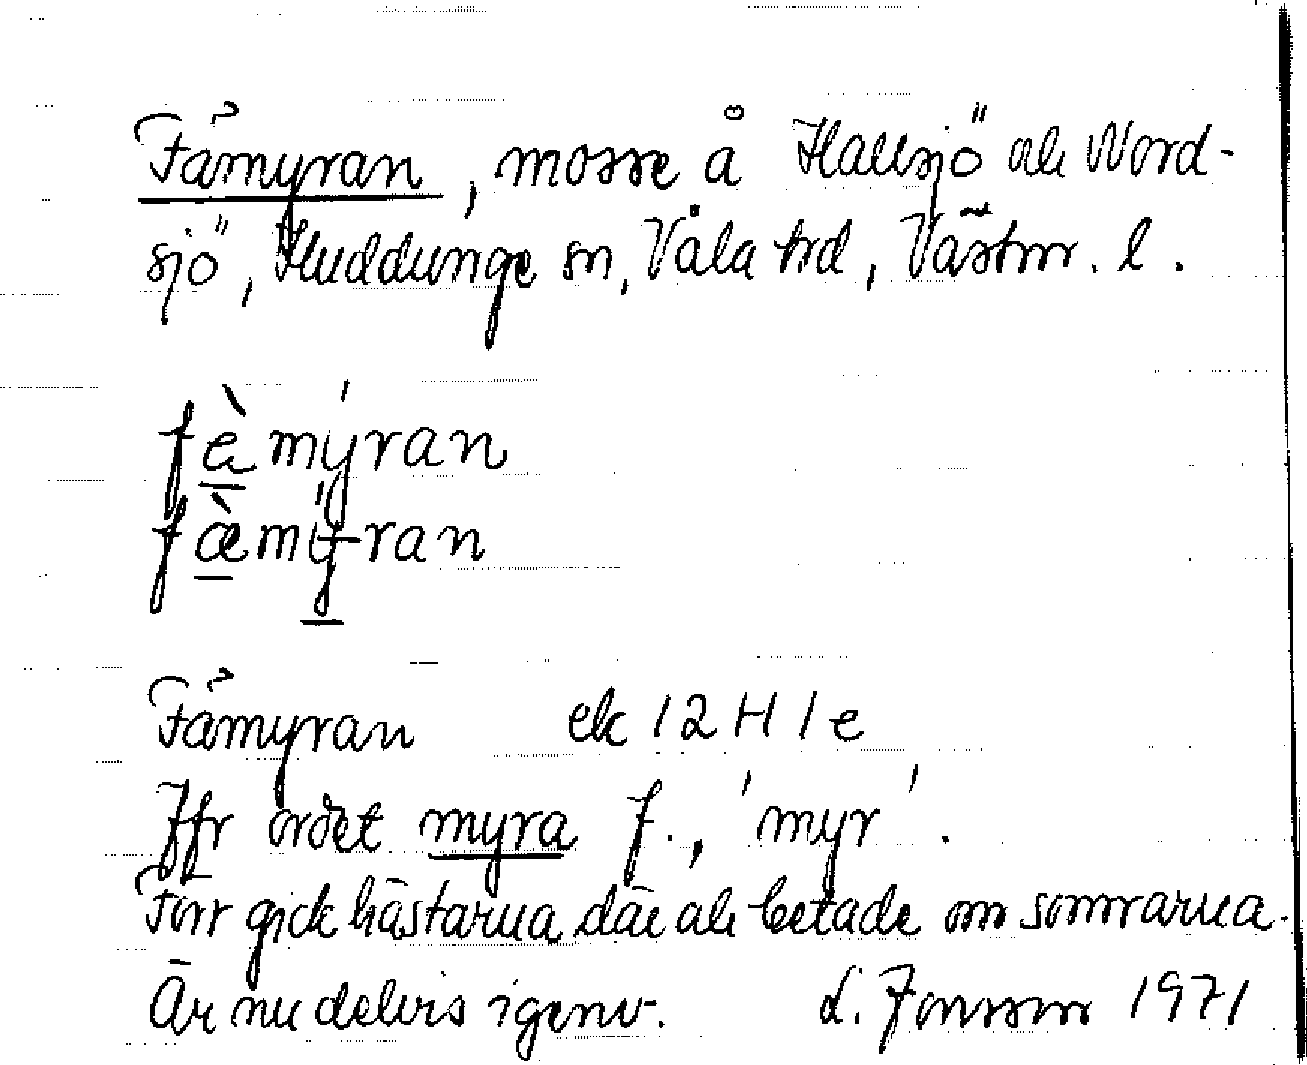 Fämyran, mosse å Hallsjö och Nord-
sjö, Huddunge sn, Våla hd, Västm. l.
fè̱mýran
fæ̱̀mý̱-ran
Fämyran ek 12 H 1 e
Jfr ordet myra f., 'myr'.
Förr gick hästarna där och betade om somrarna.
Är nu delvis igenv. L. Jonsson 1971